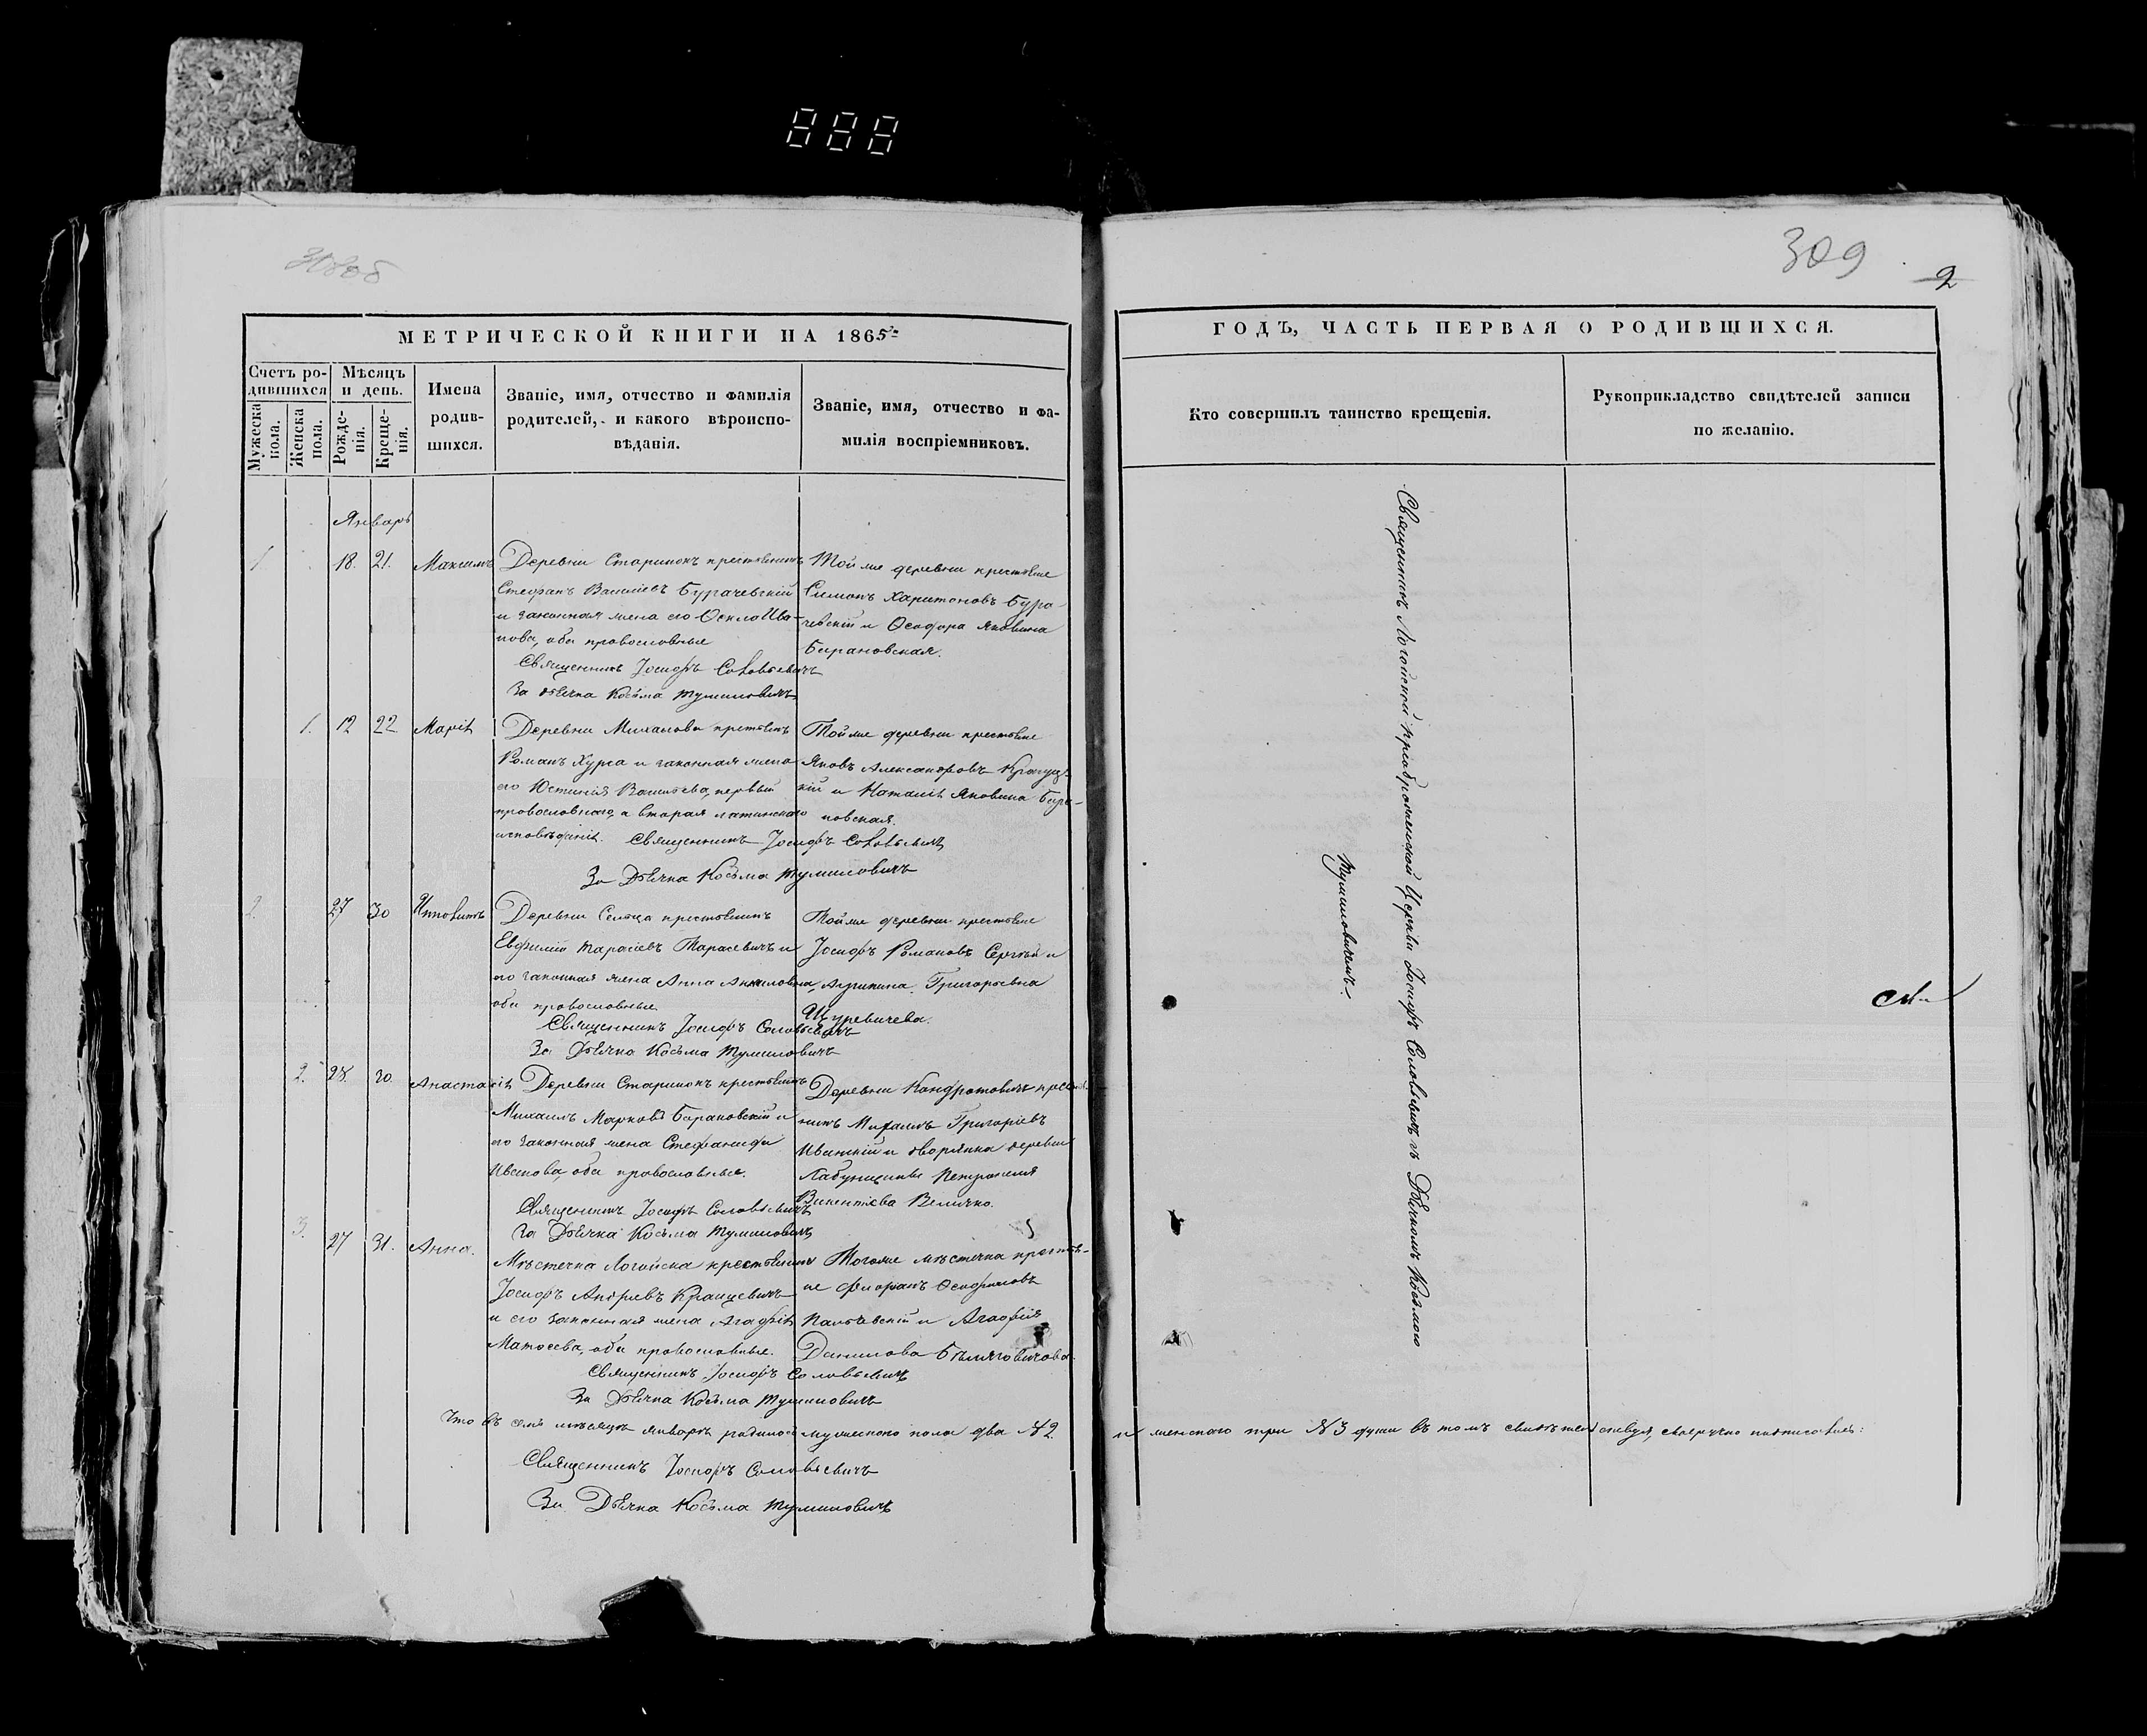 888
308об
309
2
МЕТРИЧЕСКОЙ КНИГИ НА 1865
ГОДЪ, ЧАСТЬ ПЕРВАЯ О РОДИВШИХСЯ.
Счетъ ро-
дившихся
Мужеска
пола.
Женска
пола.
Мѣсяцъ
и день.
Рожде-
нія.
Креще-
нія.
Имена
родив-
шихся.
Званіе, имя, отчество и фамилія
родителей, и какого вѣроиспо-
вѣданія.
Званіе, имя, отчество и фа-
милія воспріемниковъ.
Кто совершилъ таинство крещенія.
Рукоприкладство свидѣтелей записи
по желанію.
Январь
1 18. 21. Максимъ
Деревни Старинокъ крестьянинъ
Стефанъ Василіевъ Бурачевскій
и законная жена его Ѳекла Ива-
нова, оба православные
Священникъ Іосифъ Соловьевичъ
За дьячка Косьма Тумиловичъ
Той же деревни крестьяне
Симонъ Харитоновъ Бура-
чевскій и Ѳеодора Яковлева
Барановская.
1. 12 22 Марія
Деревни Миханова крестьян.
Романъ Хурса и законная жена
его Юстинія Василіева, первый
православнаго, а вторая латинскаго
исповѣданія. Священникъ Іосифъ Соловьевичъ
За Дьячка Косьма Тумиловичъ
Той же деревни крестьяне
Яковъ Александровъ
кій и Наталія Яковлева Бара-
новская.
2. 27 30
Деревни Сельца крестьянинъ
Евфимій Тарасіевъ Тарасевичъ и
его законная жена Анна
оба православные
Священникъ Іосифъ Соловьевичъ
За Дьячка Косьма Тумиловичъ
Той же деревни крестьяне
Іосифъ Романовъ Сергѣй и
Агрипина Григорьевна
Щуревичева.
2. 28. 30. Анастасія
Деревни Старинокъ крестьянинъ
Михаилъ Марковъ Барановскій и
его законная жена Стефанида
Иванова, оба православные.
Священникъ Іосифъ Соловьевичъ
За Дьячка Косьма Тумиловичъ
Деревни Кондратовичъ кресть-
нинъ Михаилъ Григоріевъ
Ивицкій и дворянка деревни
Лабунщины Петронеля
Викентіева Величко.
3. 27 31. Анна.
Мѣстечка Логойска крестьянинъ
Іосифъ Андріевъ Кранцевичъ
и его законная жена Агафія
Матѳеева, оба православные.
Священникъ Іосифъ Соловьевичъ
За Дьячка Косьма Тумиловичъ
Тогоже мѣстечка крестья-
не Флоріанъ
и Агафія
Данилова
Что въ семъ мѣсяцѣ январѣ родилось мужескаго пола два №2. и женскаго три №3 души въ томъ свидѣтельствуя, своеручно подписались:
Священникъ Іосифъ Соловьевичъ
За Дьячка Косьма Тумиловичъ
Священникъ Логойской преображенской Церкви Іосифъ Соловьевичъ съ Дьячкомъ Косьмою
Тумиловичемъ.